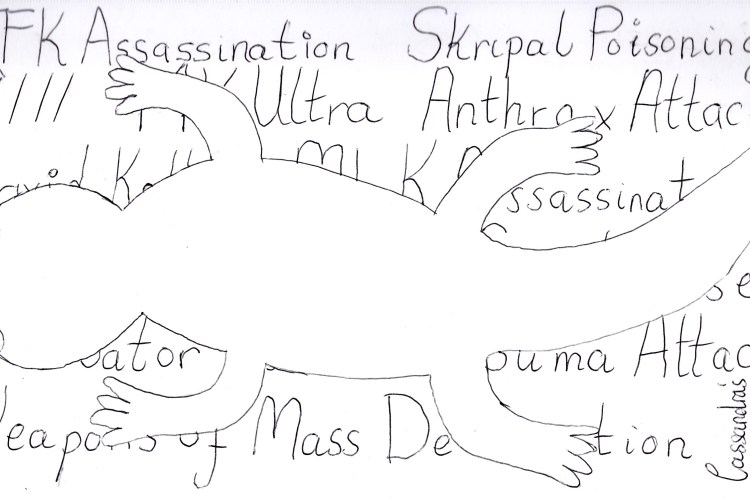 FK Assassination Skripal Poisoning
Ultra Anthrax Attac
avid K MLK
ssassinat
se
ator ouma Attac
eapons of Mass De tion
Cassandra's